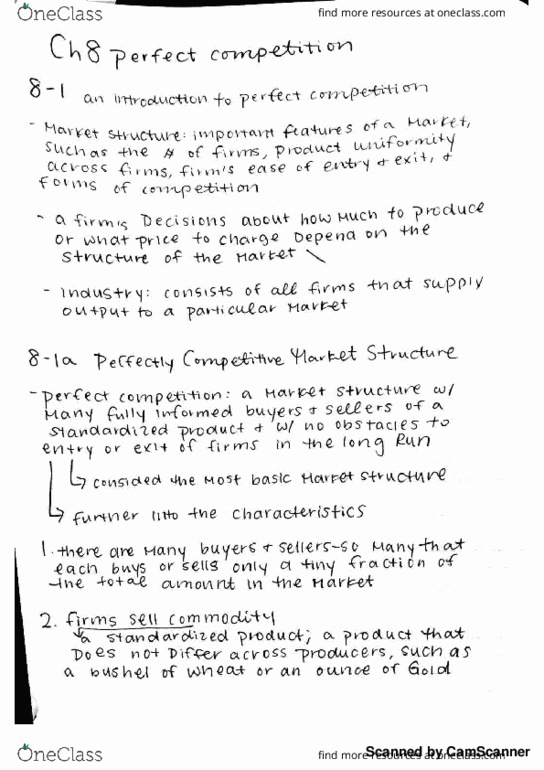 OneClass
find more resources at oneclass.com
Ch8 perfect competition
8-1 an introduction to perfect competition
- Market Structure: important features of a Market,
such as the # of firms, product uniformity
across firms, firm's ease of entry + exit, +
forms of competition
- a firm's Decisions about how much to produce
or what price to charge Depend on the
structure of the Market
- industry: consists of all firms that supply
output to a particular Market
8-1a Perfectly Competitive Market Structure
- perfect competition: a Market structure w/
Many fully informed buyers + sellers of a
standardized product + w/ no obstacles to
entry or exit of firms in the long Run
↳ consided the most basic Market structure
↳ further into the characteristics
1. there are Many buyers + sellers-so Many that
each buys or sells only a tiny fraction of
the total amount in the Market
2. firms sell commodity
↳ a standardized product; a product that
Does not Differ across producers, such as
a bushel of wheat or an ounce of Gold
OneClass
find more resources at oneclass.com
Scanned by CamScanner